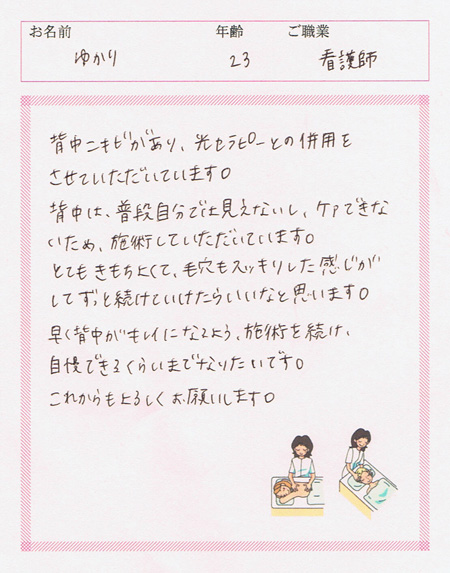 お名前 年齢 ご職業
ゆかり 23 看護師
背中ニキビがあり、光セラピーとの併用を
させていただいています。
背中は、普段自分では見えないし、ケアできな
いため、施術していただいています。
とてもきもちよくて、毛穴もスッキリした感じが
してずっと続けていけたらいいなと思います。
早く背中がキレイになるよう、施術を続け、
自慢できるくらいまでなりたいです。
これからもよろしくお願いします。